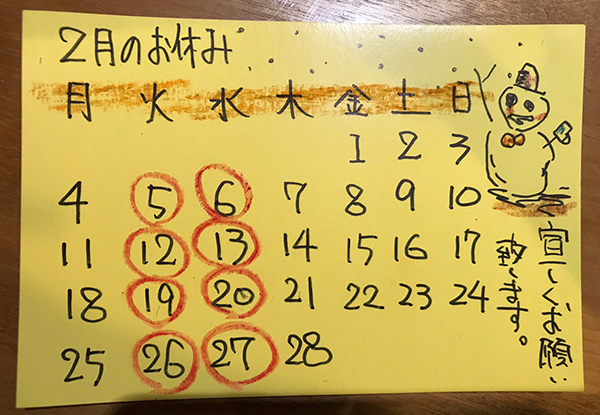 2月のお休み
月 火 水 木 金 土 日
1 2 3
4 5 6 7 8 9 10
11 12 13 14 15 16 17
18 19 20 21 22 23 24
25 26 27 28
宜しくお願い
致します。